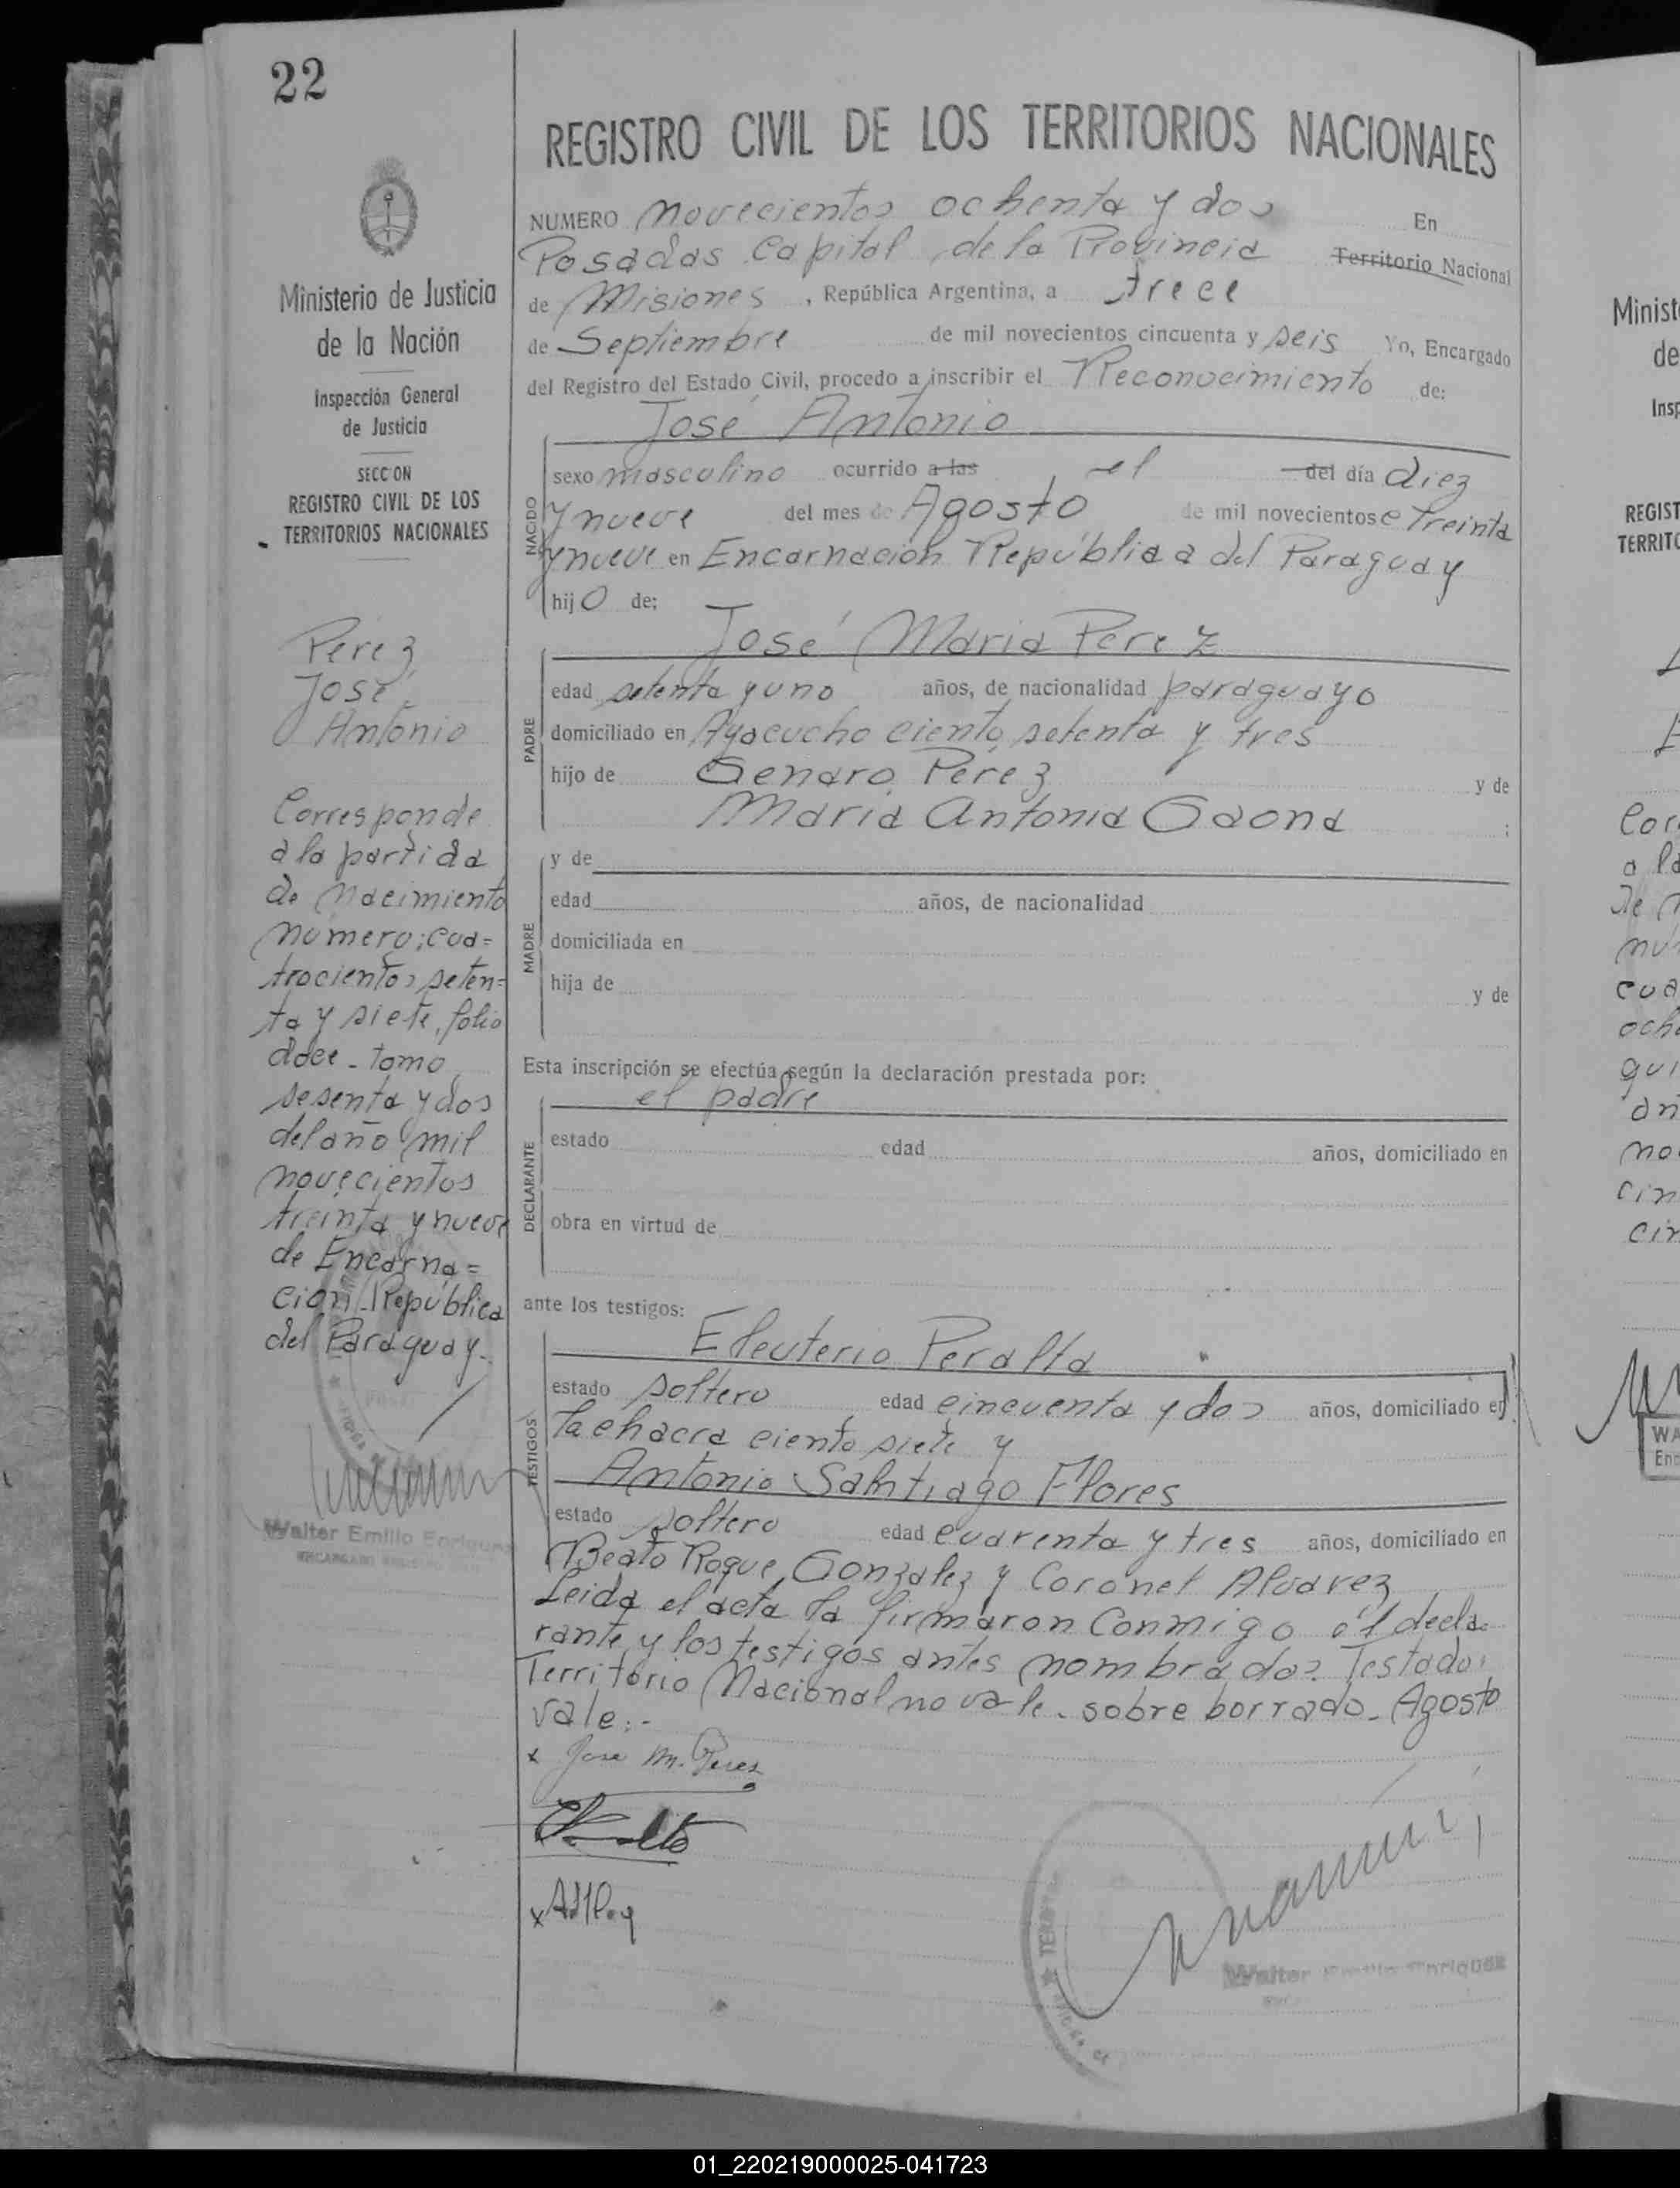 22
Ministerio de Justicia
de la Nación
Inspección General
de Justicia
SECCION
REGISTRO CIVIL DE LOS
TERRITORIOS NACIONALES
Perez
José
Antonio
Corresponde
a la partida
de Nacimiento
número; cua=
trocientos seten=
ta y siete, folio
doce - tomo
sesenta y dos
del año mil
novecientos
treinta y nueve
de Encarna=
ción - República
del Paraguay.
Walter Emilio Enriquez
REGISTRO CIVIL DE LOS TERRITORIOS NACIONALES
NUMERO novecientos ochenta y dos En
Posadas Capital de la Provincia Territorio Nacional
de Misiones, República Argentina, a trece
de Septiembre de mil novecientos cincuenta y seis Yo, Encargado
del Registro del Estado Civil, procedo a inscribir el Reconocimiento de:
José Antonio
NACIDO
sexo masculino ocurrido a las el del día diez
y nueve del mes de Agosto de mil novecientos e treinta
y nueve en Encarnación República del Paraguay
hijo de;
José Maria Perez
PADRE
edad setenta y uno años, de nacionalidad paraguayo
domiciliado en Ayacucho ciento setenta y tres
hijo de Genaro Perez y de
Maria Antonia Gaona ;
MADRE
y de
edad años, de nacionalidad
domiciliada en
hija de y de
Esta inscripción se efectúa según la declaración prestada por:
el padre
DECLARANTE
estado edad años, domiciliado en
obra en virtud de
ante los testigos:
Eleuterio Peralta
TESTIGOS
estado soltero edad cincuenta y dos años, domiciliado en
la chacra ciento siete y
Antonio Santiago Flores
estado soltero edad cuarenta y tres años, domiciliado en
Beato Roque Gonzalez y Coronel Alvarez
Leida el acta la firmaron conmigo el decla-
rante y los testigos antes nombrados. Testado:
Territorio Nacional no vale. sobre borrado - Agosto
vale:-
x Jose M. Perez
Walter Emilio Enriquez
Minist
de
Insp
REGIST
TERRITO
Cor
a la
De N
nú
cua
och
qui
añ
no
cin
cin
WA
Enc
01_220219000025-041723